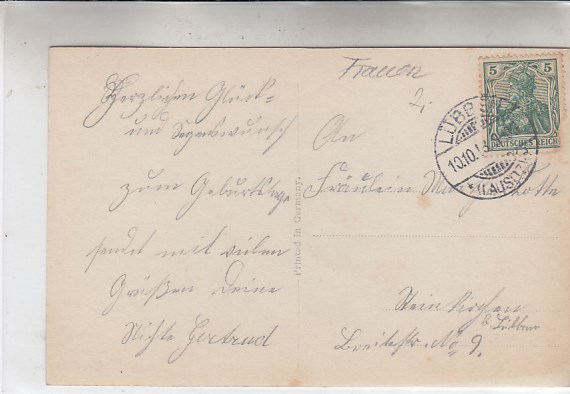 Herzlichen Glück-
und Segenswunsch
zum Geburtstage
sendet mit vielen
Grüßen Deine
Nichte Gertrud
Printed in Germany.
Frauen
2,
An
Fräulein
Steinkirchen
b Lübben
Breitestr. No 9.
5 5
DEUTSCHES REICH
LÜBB
10.10.1
(LAUSITZ)